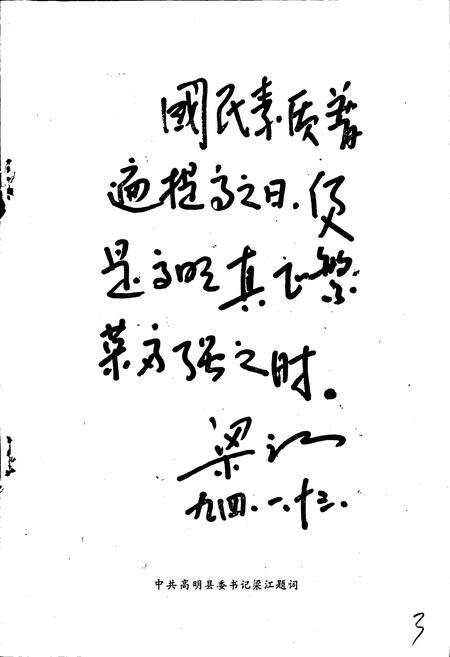 國民素质普
遍提高之日，便
是高明真正繁
荣富强之时。
梁江
九四.一.十三.
中共高明县委书记梁江题词
3